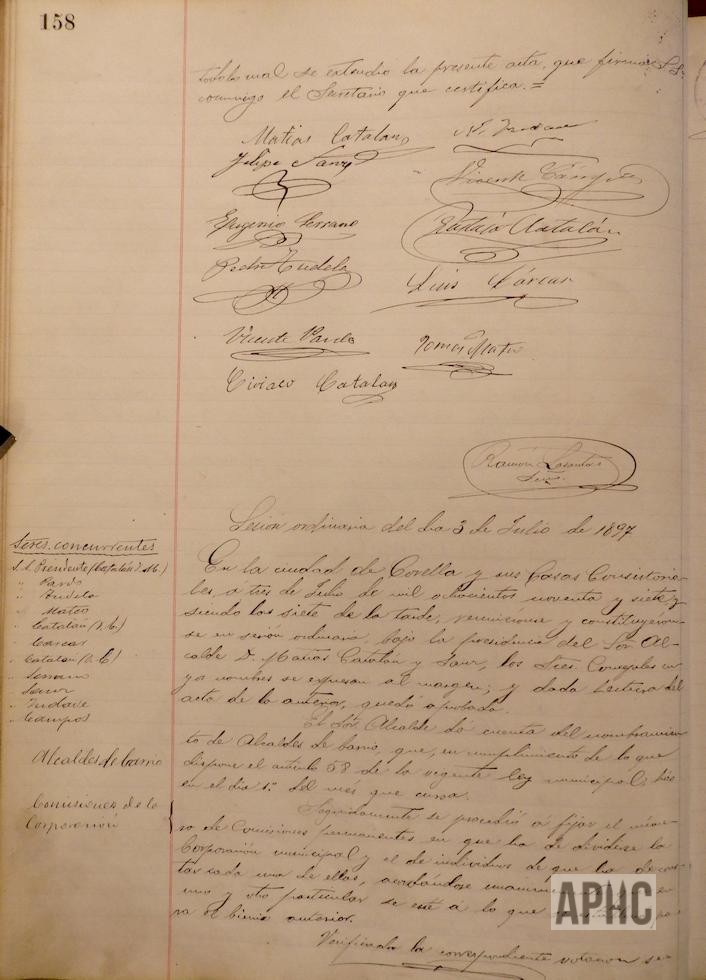 158
todo lo cual se extendio la presente acta, que firman S.S.
conmigo el Secretario que certifica.=
Matias Catalan
Felipe Sanz
Vicente
Eugenio Serrano
Rafael Catalán
Pedro Tudela
Luis Cárcar
Vicente Pardo
Tomas Mateo
Ciriaco Catalan
Ramón Losantos
Srio.
Sesión ordinaria del dia 3 de Julio de 1897
Sres. concurrentes
S.S. Presidente (Catalán D. M.)
" Pardo
" Tudela
" Mateo
" Catalán (D. C.)
" Carcar
" Catalán (D. C.)
" Serrano
" Sanz
" Yudave
" Campos
En la ciudad de Corella y sus Casas Consistoria-
les, á tres de Julio de mil ochocientos noventa y siete, y
siendo las siete de la tarde, reuniéronse y constituyeron-
se en sesión ordinaria, bajo la presidencia del Sor. Al-
calde D. Matias Catalán y Sanz, los Sres. Concejales cu-
yos nombres se expresan al margen; y dada lectura del
acta de la anterior, quedó aprobada.
Alcaldes de barrio
El Sor. Alcalde dá cuenta del nombramien-
to de Alcaldes de barrio, que, en cumplimiento de lo que
dispone el artículo 58 de la vigente ley municipal, hizo
en el dia 1º del mes que cursa.
Comisiones de la
Corporación
Seguidamente se procedió á fijar el núme-
ro de Comisiones permanentes en que ha de dividirse la
Corporación municipal y el de individuos de que ha de cons-
tar cada una de ellas, acordándose en
uno y otro particular se esté á lo que
ra el bienio anterior.
Verificada la correspondiente votacion se
APHC